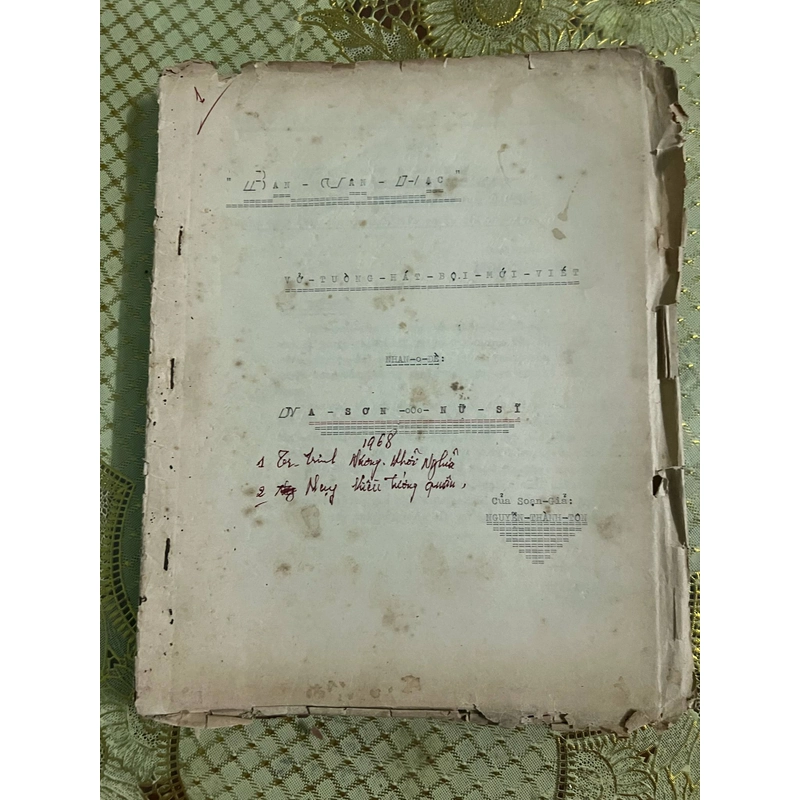 " BẢN - CHÁN - D-LẠC "
VỞ-TUỒNG-HÁT-BỘI-MỚI-VIẾT
NHAN-o-ĐỀ:
A - SƠN -oOo- NỮ - SĨ
1968
1 Tr. Trinh Vương. Khởi Nghĩa
2 Nhụy Kiều tướng quân.
Của Soạn-Giả:
NGUYỄN-THÀNH-TÔN